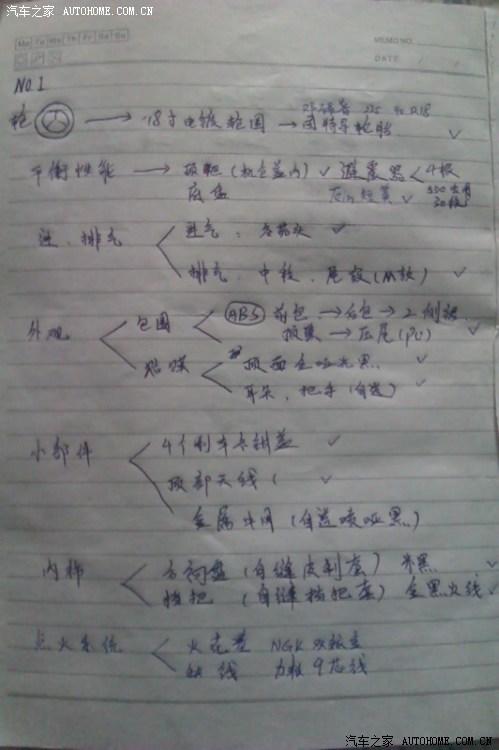 汽车之家 AUTOHOME.COM.CN
Mo Tu We Th Fr Sa Su
MEMO NO.
DATE / /
NO.1
邓禄普 225 40 R18
轮 → 18寸电镀轮圈 → 固特异轮胎 ✓
平衡性能 → 顶粑(机仓盖内) ✓ 避震器 < 4根
底盘 短簧 ✓
进、排气 < 进气: 冬菇头 ✓
排气: 中段、尾段(M鼓) ✓
外观 < 包围 < (ABS) 前包 → 后包 → 2侧裙
顶翼 → 压尾(PU) ✓
贴膜 < 顶面全哑光黑 ✓
耳朵、把手(自选) ✓
小部件 < 4个刹车卡钳盖 ✓
顶部天线(✓
金属中网(自选喷哑黑)
内饰 < 方向盘(自缝皮制套) 米黑 ✓
档把(自缝档把套) 全黑火线 ✓
点火系统 < 火花塞 NGK
缸线 力极9芯线
汽车之家 AUTOHOME.COM.CN